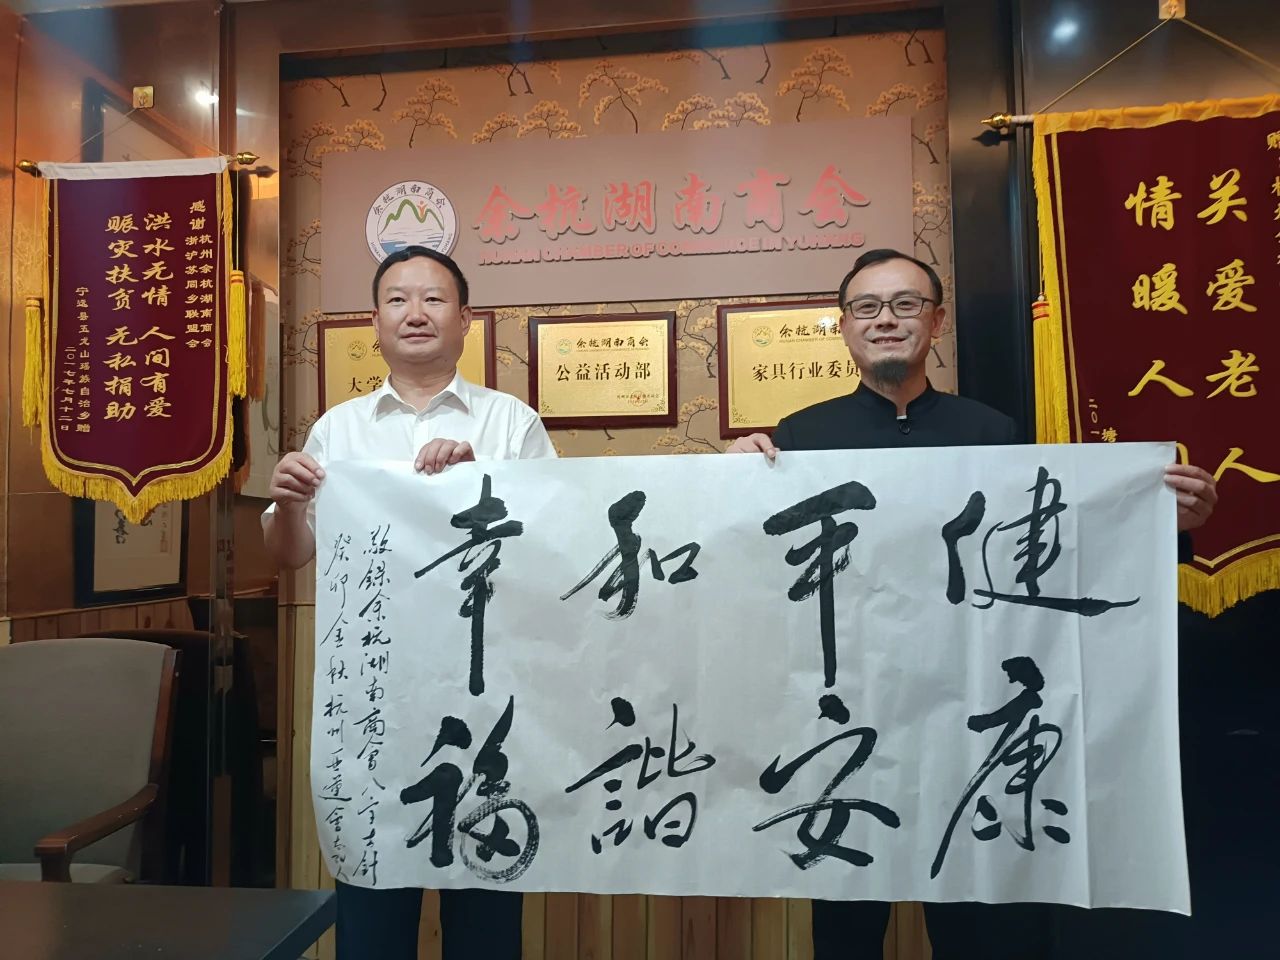 余杭湖南商会
余杭湖南商会
HUNAN CHAMBER OF COMMERCE IN YUHANG
感谢杭州余杭湖南商会
浙沪苏同乡联盟会
洪水无情 人间有爱
赈灾扶贫 无私捐助
宁远县五龙山瑶族自治乡赠
二〇一七年七月十二日
大学
余杭湖南商会
公益活动部
余杭湖南
家具行业委员
关爱老人
情暖人
健康
平安
和谐
幸福
敬录余杭湖南商会八字方针
癸卯金秋杭州亚运会